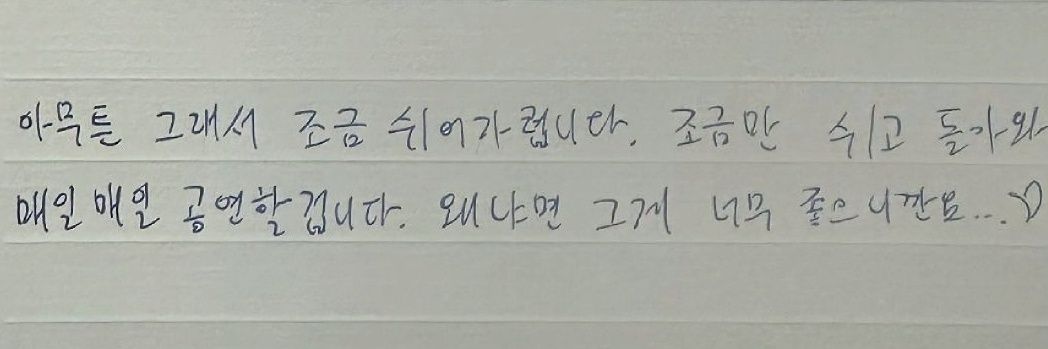 아무튼 그래서 조금 쉬어가렵니다. 조금만 쉬고 돌아와
매일매일 공연할겁니다. 왜냐면 그게 너무 좋으니깐요...:)